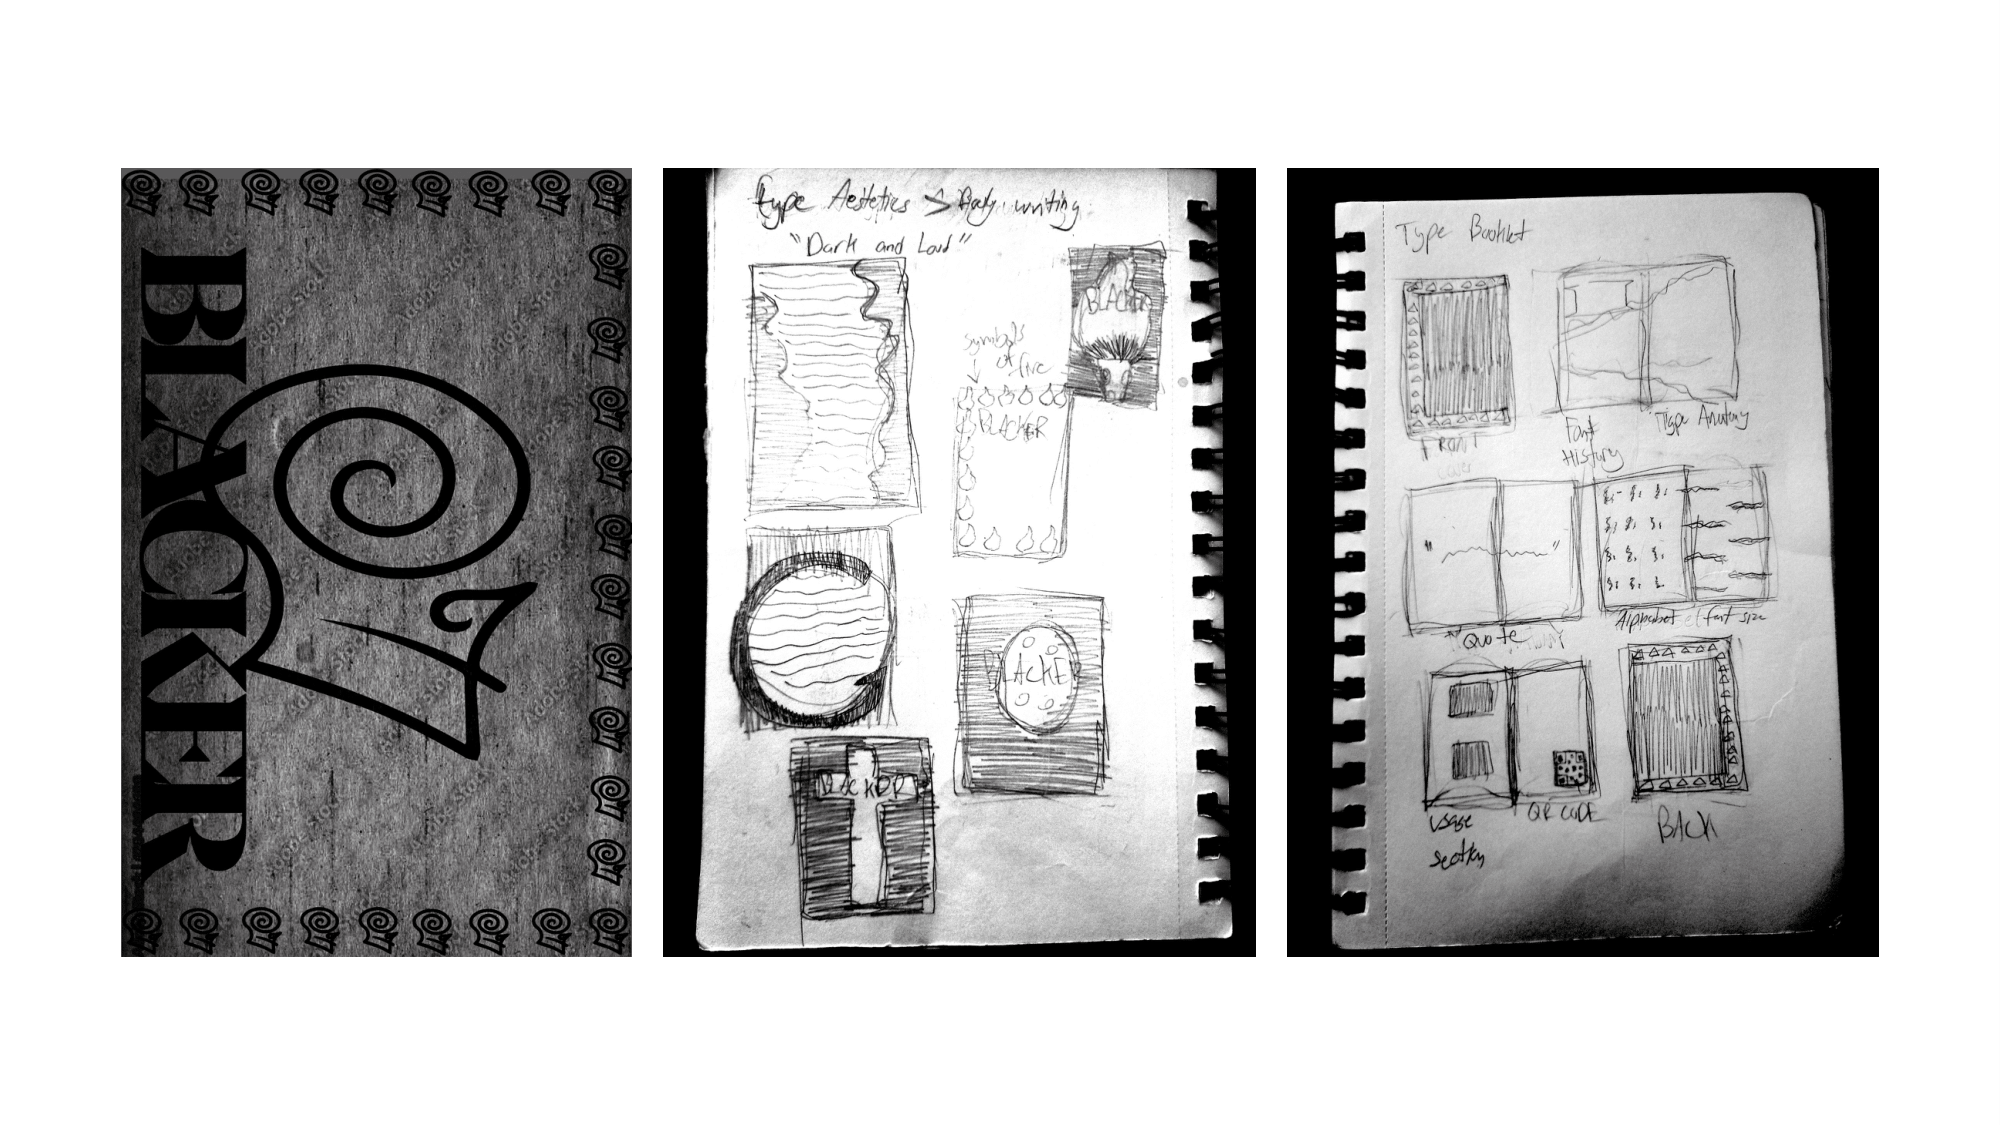 BLACKER
Adobe Stock
type Aestetics >
writing
"Dark and Loud"
BLACKER
symbols
of fire
BLACKER
BLACKER
Type Booklet
FRONT
cover
Font
History
Type Anatomy
"
"
"Quote
Alphabet
font size
usage
QR CODE
BACK